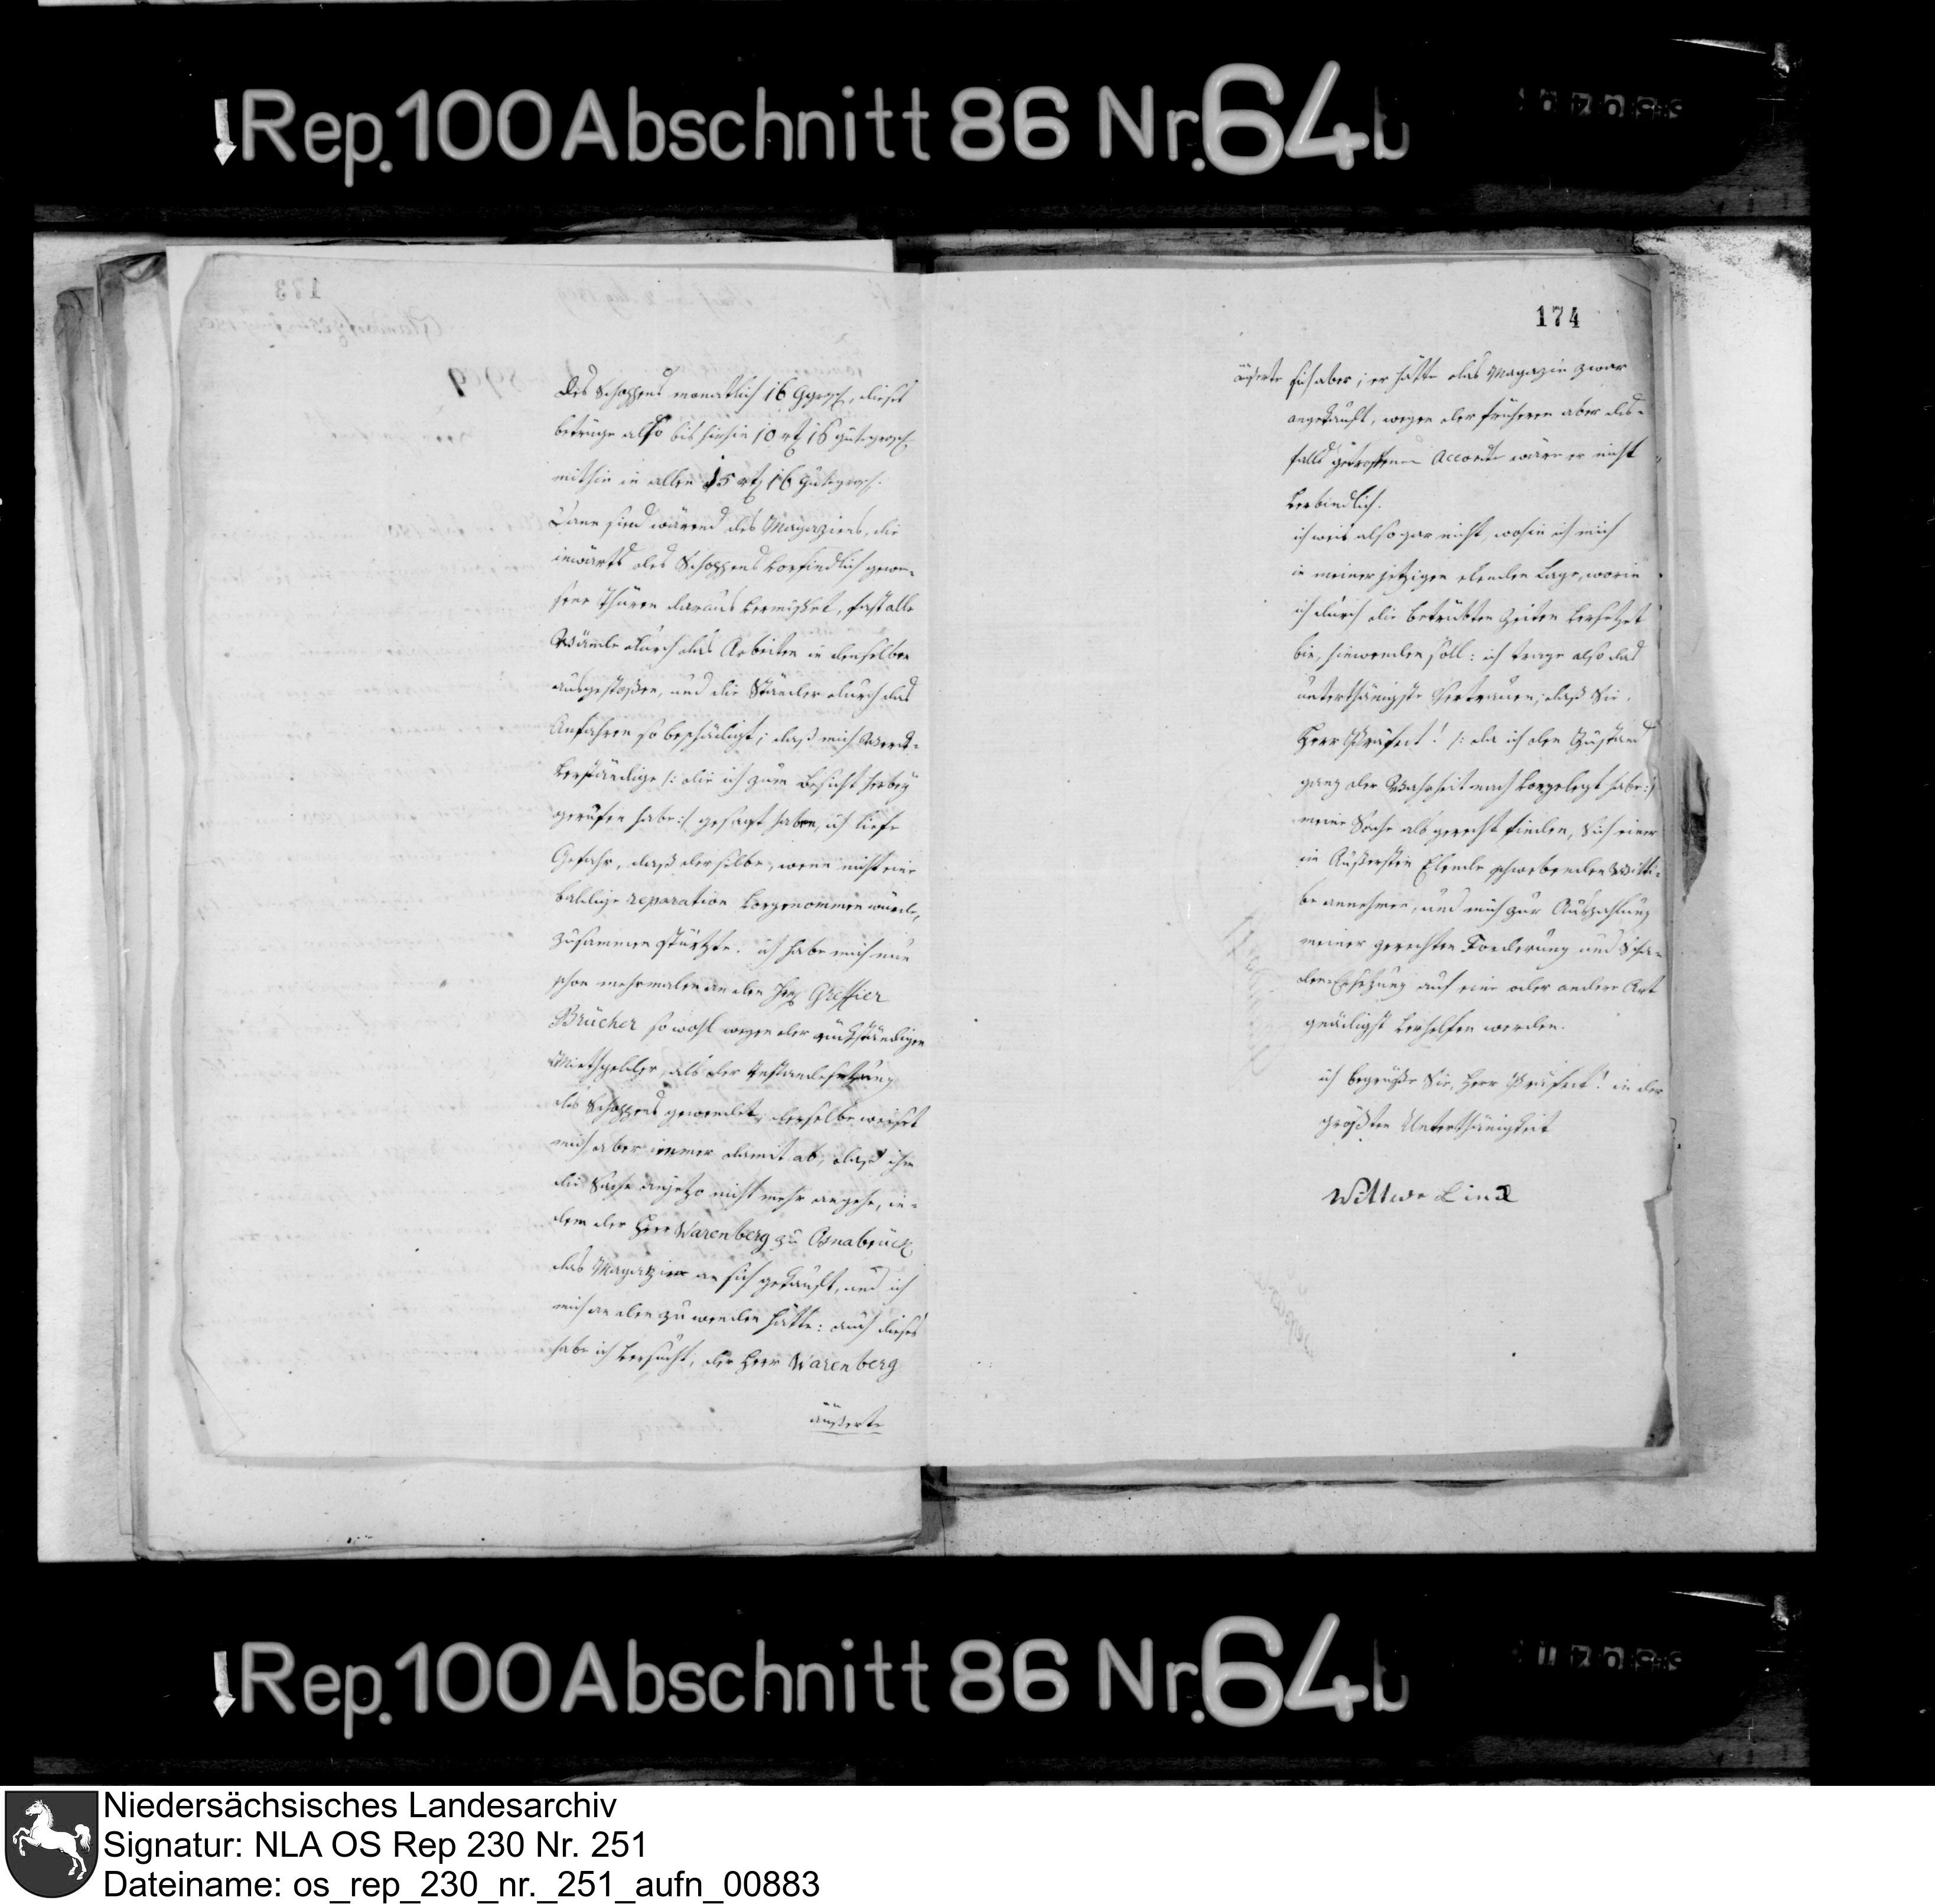 Rep. 100 Abschnitt 86 Nr. 64b
des Schoppens monatlich 16 Ggrosch, dieses
betrüge also bis hiehin 10 rt 16 gutegrosch.
mithin in allen 15 rt 16 gutegrosch.
Dann sind wärend des Magaziens, die
inwärts des Schoppens vorfindlich gewe-
sene Thüren daraus vermisset, fast alle
Wände durch das Arbeiten in denselben
ausgestoßen, und die Ständer durch das
Anfahren so beschädigt; daß mich Werk-
verständige /: die ich zum Besicht herbey
gerufen habe :/ gesagt haben, ich liefe
Gefahr, daß derselbe, wenn nicht eine
baldige reparation vorgenommen würde,
zusammen stürtzte. ich habe mich nun
schon mehrmalen an den Herr Greffier
Brücher so wohl wegen der rückständigen
Miethgelder, als der Instandesetzung
des Schoppens gewendet, derselbe weiset
mich aber immer damit ab, daß ihm
die Sache anjetzo nicht mehr angehe, in-
dem der Herr Warenberg zu Osnabrück
das Magazien an sich gekauft, und ich
mich an den zu wenden hätte: auch dieses
habe ich versucht, der Herr Warenberg
äußerte
174
äußerte sich aber; er hätte das Magazin zwar
angekauft, wegen der früheren aber des-
falls getroffenen Accorde wäre er nicht
verbindlich.
ich weis also gar nicht, wohin ich mich
in meiner jetzigen elenden Lage, worin
ich durch die betrübten Zeiten versetzet
bin, hinwenden soll: ich trage also das
unterthänigste Vertrauen, daß Sie,
Herr Präfect! /: da ich den Zustand
ganz der Wahrheit nach vorgelegt habe :/
meine Sache als gerecht finden, sich einer
im Äußersten Elende schwebenden Witti-
be annehmen, und mich zur Auszahlung
meiner gerechten Forderung und Scha-
den-Ersetzung auf eine oder andere Art
gnädigst verhelfen werden.
ich begrüße Sie, Herr Präfect! in der
größten Unterthänigkeit
Wittwe Lind
Rep. 100 Abschnitt 86 Nr. 64b
Niedersächsisches Landesarchiv
Signatur: NLA OS Rep 230 Nr. 251
Dateiname: os_rep_230_nr._251_aufn_00883